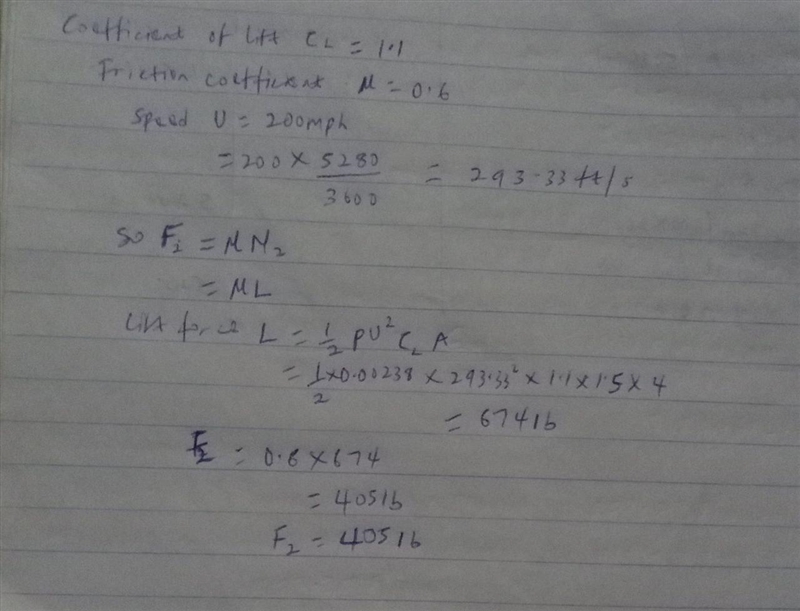 Coefficient of lift CL = 1.1
Friction coefficient μ = 0.6
Speed U = 200mph
= 200 × 5280/3600 = 293.33 ft/s
So F2 = μN2
= μL
Lift force L = 1/2 ρU² CL A
= 1/2 × 0.00238 × 293.33² × 1.1 × 1.5 × 4
= 674lb
F2 = 0.6 × 674
= 405lb
F2 = 405lb